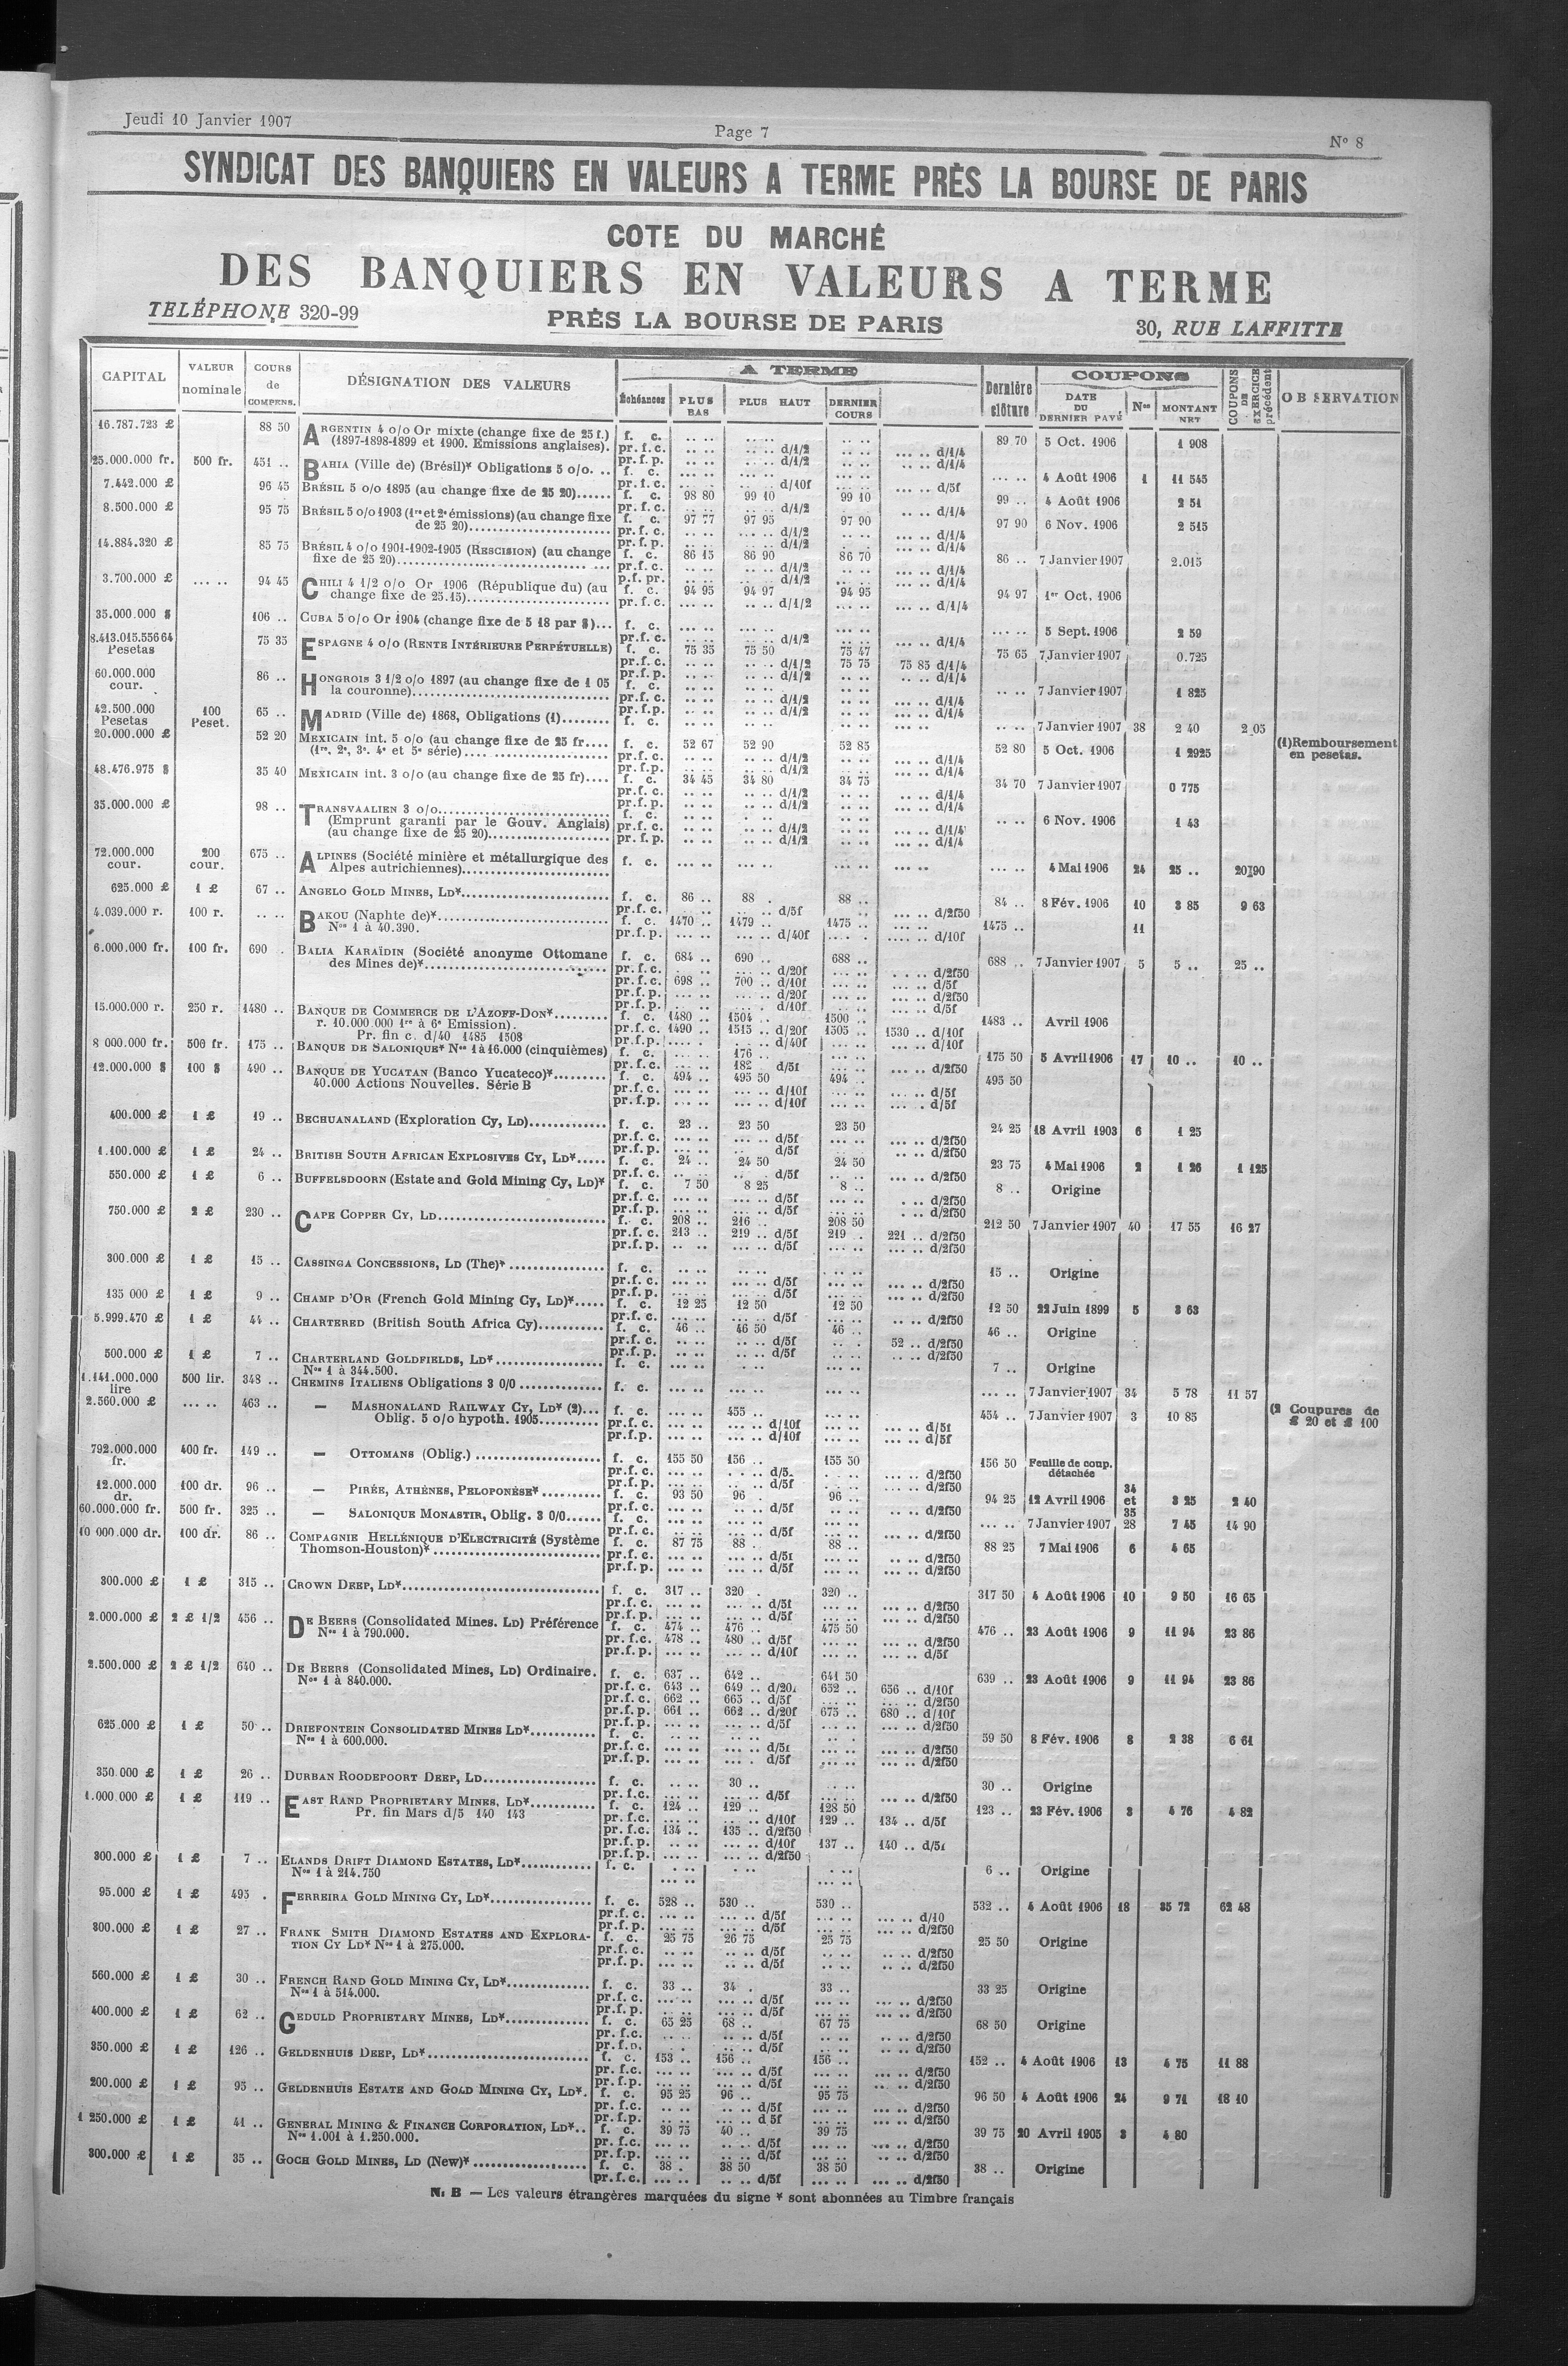 Jeudi 10 Janvier 1907
Page 7
N° 8
SYNDICAT DES BANQUIERS EN VALEURS A TERME PRÈS LA BOURSE DE PARIS
COTE DU MARCHÉ
DES BANQUIERS EN VALEURS A TERME
TELÉPHONE 320-99
PRÈS LA BOURSE DE PARIS
30, RUE LAFFITTE
CAPITAL | VALEUR nominale | COURS de COMPENS. | DÉSIGNATION DES VALEURS | A TERME | Échéances | PLUS BAS | PLUS HAUT | DERNIER COURS | Dernière clôture | COUPONS | DATE DU DERNIER PAYÉ | Nos | MONTANT NET | COUPONS DE EXERCICE précédent | OBSERVATION
16.787.723 £ 88 50 ARGENTIN 4 o/o Or mixte (change fixe de 25 f.) f. c. .. .. .. .. .. .. 89 70 5 Oct. 1906 1 908
(1897-1898-1899 et 1900. Emissions anglaises). pr. f. c. .. .. .. .. d/1/2 .. .. ... .. d/1/4
pr. f. p. .. .. .. .. d/1/2 .. .. d/1/4
25.000.000 fr. 500 fr. 451 .. BAHIA (Ville de) (Brésil)* Obligations 5 o/o. .. f. c. ... .. 4 Août 1906 1 11 545
pr. f. c. d/10f ... .. d/5f
7.442.000 £ 96 45 BRÉSIL 5 o/o 1895 (au change fixe de 25 20)...... f. c. 98 80 99 10 99 10 99 .. 4 Août 1906 2 51
pr. f. c. d/1/2 d/1/4
8.500.000 £ 95 75 BRÉSIL 5 o/o 1903 (1re et 2e émissions) (au change fixe f. c. 97 77 97 95 97 90 97 90 6 Nov. 1906 2 515
de 25 20)........ pr. f. c. d/1/2 d/1/4
pr. f. p. d/1/2 d/1/4
14.884.320 £ 85 75 BRÉSIL 4 o/o 1901-1902-1905 (RESCISION) (au change f. c. 86 15 86 90 86 70 86 .. 7 Janvier 1907 2.015
fixe de 25 20)........ pr. f. c. d/1/2 d/1/4
p. f. pr. d/1/2 d/1/4
3.700.000 £ ... .. 94 45 CHILI 4 1/2 o/o Or 1906 (République du) (au f. c. 94 95 94 97 94 95 94 97 1er Oct. 1906
change fixe de 25.15)........ pr. f. c. d/1/2 d/1/4
35.000.000 $ 106 .. CUBA 5 o/o Or 1904 (change fixe de 5 18 par $)... f. c. ... .. 5 Sept. 1906 2 59
pr. f. c. d/1/2 d/1/4
8.413.015.556 64 Pesetas 75 35 ESPAGNE 4 o/o (RENTE INTÉRIEURE PERPÉTUELLE) f. c. 75 35 75 50 75 47 75 65 7 Janvier 1907 0.725
pr. f. c. d/1/2 75 75 75 85 d/1/4
pr. f. p. d/1/2 d/1/4
60.000.000 cour. 86 .. HONGROIS 3 1/2 o/o 1897 (au change fixe de 1 05 f. c. .. .. 7 Janvier 1907 1 825
la couronne)........ pr. f. c. d/1/2 d/1/4
pr. f. p. d/1/2 d/1/4
42.500.000 Pesetas 100 Peset. 65 .. MADRID (Ville de) 1868, Obligations (1)........ f. c. .. .. 7 Janvier 1907 38 2 40 2 05
20.000.000 £ 52 20 MEXICAIN int. 5 o/o (au change fixe de 25 fr.... f. c. 52 67 52 90 52 85 52 80 5 Oct. 1906 1 2925 (1) Remboursement en pesetas.
(1re, 2e, 3e, 4e et 5e série)........ pr. f. c. d/1/2 d/1/4
pr. f. p. d/1/2 d/1/4
48.476.975 $ 35 40 MEXICAIN int. 3 o/o (au change fixe de 25 fr).... f. c. 34 45 34 80 34 75 34 70 7 Janvier 1907 0 775
pr. f. c. d/1/2 d/1/4
pr. f. p. d/1/2 d/1/4
35.000.000 £ 98 .. TRANSVAALIEN 3 o/o........ f. c. .. .. 6 Nov. 1906 1 43
(Emprunt garanti par le Gouv. Anglais) pr. f. c. d/1/2 d/1/4
(au change fixe de 25 20)........ pr. f. p. d/1/2 d/1/4
72.000.000 cour. 200 cour. 675 .. ALPINES (Société minière et métallurgique des f. c. ... .. 4 Mai 1906 24 25 .. 20 90
Alpes autrichiennes)........
625.000 £ 1 £ 67 .. ANGELO GOLD MINES, LD*........ f. c. 86 .. 88 . 88 .. 84 .. 8 Fév. 1906 10 3 85 9 63
pr. f. c. d/5f d/2f50
4.039.000 r. 100 r. .. .. BAKOU (Naphte de)*........ f. c. 1470 .. 1479 .. 1475 .. 1475 .. 11
Nos 1 à 40.390. pr. f. p. d/40f d/10f
6.000.000 fr. 100 fr. 690 . BALIA KARAÏDIN (Société anonyme Ottomane f. c. 684 .. 690 .. 688 .. 688 .. 7 Janvier 1907 5 5 .. 25 ..
des Mines de)*........ pr. f. c. d/20f d/2f50
pr. f. c. 698 .. 700 .. d/10f d/5f
pr. f. p. d/20f d/2f50
pr. f. p. d/10f d/5f
15.000.000 r. 250 r. 1480 .. BANQUE DE COMMERCE DE L'AZOFF-DON*........ f. c. 1480 .. 1504 .. 1500 .. 1483 .. Avril 1906
r. 10.000.000 1re à 6e Emission). pr. f. c. 1490 .. 1515 .. d/20f 1505 .. 1530 .. d/10f
Pr. fin c. d/40 1485 1508 pr. f. p. d/40f d/10f
8 000.000 fr. 500 fr. 175 .. BANQUE DE SALONIQUE* Nos 1 à 16.000 (cinquièmes) f. c. 176 .. 175 50 5 Avril 1906 17 10 .. 10 ..
pr. f. c. 182 d/5f d/2f50
12.000.000 $ 100 $ 490 .. BANQUE DE YUCATAN (Banco Yucateco)*........ f. c. 494 .. 495 50 494 .. 495 50
40.000 Actions Nouvelles. Série B pr. f. c. d/10f d/5f
pr. f. p. d/10f d/5f
400.000 £ 1 £ 19 .. BECHUANALAND (Exploration Cy, LD)........ f. c. 23 .. 23 50 23 50 24 25 18 Avril 1903 6 1 25
pr. f. c. d/5f d/2f50
pr. f. p. d/5f d/2f50
1.100.000 £ 1 £ 24 .. BRITISH SOUTH AFRICAN EXPLOSIVES CY, LD*..... f. c. 24 .. 24 50 24 50 23 75 4 Mai 1906 2 1 26 1 125
pr. f. c. d/5f d/2f50
550.000 £ 1 £ 6 .. BUFFELSDOORN (Estate and Gold Mining Cy, LD)* f. c. 7 50 8 25 8 .. 8 .. Origine
pr. f. c. d/5f d/2f50
pr. f. p. d/5f d/2f50
750.000 £ 2 £ 230 .. CAPE COPPER CY, LD........ f. c. 208 .. 216 .. 208 50 212 50 7 Janvier 1907 40 17 55 16 27
pr. f. c. 213 .. 219 .. d/5f 219 . 221 .. d/2f50
pr. f. p. d/5f d/2f50
300.000 £ 1 £ 15 .. CASSINGA CONCESSIONS, LD (The)*........ f. c. 15 .. Origine
pr. f. c. d/5f d/2f50
pr. f. p. d/5f d/2f50
135 000 £ 1 £ 9 .. CHAMP D'OR (French Gold Mining Cy, LD)*..... f. c. 12 25 12 50 12 50 12 50 22 Juin 1899 5 3 63
pr. f. c. d/5f d/2f50
5.999.470 £ 1 £ 44 .. CHARTERED (British South Africa Cy)........ f. c. 46 .. 46 50 46 .. 46 .. Origine
pr. f. c. d/5f 52 .. d/2f50
pr. f. p. d/5f d/2f50
500.000 £ 1 £ 7 .. CHARTERLAND GOLDFIELDS, LD*........ f. c. 7 .. Origine
Nos 1 à 344.500.
1.141.000.000 lire 500 lir. 348 .. CHEMINS ITALIENS Obligations 3 0/0........ f. c. ... .. 7 Janvier 1907 34 5 78 11 57
2.560.000 £ ... .. 463 .. — MASHONALAND RAILWAY CY, LD* (2)... f. c. 455 .. 454 .. 7 Janvier 1907 3 10 85 (2 Coupures de £ 20 et £ 100
Oblig. 5 o/o hypoth. 1905........ pr. f. c. d/10f d/5f
pr. f. p. d/10f d/5f
792.000.000 fr. 400 fr. 149 .. — OTTOMANS (Oblig.)........ f. c. 155 50 156 .. 155 50 156 50 Feuille de coup. détachée
pr. f. c. d/5. d/2f50
pr. f. p. d/5f d/2f50
12.000.000 dr. 100 dr. 96 .. — PIRÉE, ATHÈNES, PELOPONÈSE*........ f. c. 93 50 96 . 96 .. 94 25 12 Avril 1906 34 et 35 3 25 2 40
pr. f. c. d/5f d/2f50
60.000.000 fr. 500 fr. 325 .. — SALONIQUE MONASTIR, Oblig. 3 0/0...... f. c. ... .. 7 Janvier 1907 28 7 45 14 90
pr. f. c. d/5f d/2f50
10 000 000 dr. 100 dr. 86 .. COMPAGNIE HELLÉNIQUE D'ELECTRICITÉ (Système f. c. 87 75 88 . 88 .. 88 25 7 Mai 1906 6 4 65
Thomson-Houston)*........ pr. f. c. d/5f d/2f50
pr. f. p. d/5f d/2f50
300.000 £ 1 £ 315 .. CROWN DEEP, LD*........ f. c. 317 .. 320 . 320 .. 317 50 4 Août 1906 10 9 50 16 65
pr. f. c. d/5f d/2f50
pr. f. p. d/5f d/2f50
2.000.000 £ 2 £ 1/2 456 .. DE BEERS (Consolidated Mines. LD) Préférence f. c. 474 .. 476 .. 475 50 476 .. 23 Août 1906 9 11 94 23 86
Nos 1 à 790.000. pr. f. c. 478 .. 480 .. d/5f d/2f50
pr. f. p. d/10f d/5f
2.500.000 £ 2 £ 1/2 640 .. DE BEERS (Consolidated Mines, LD) Ordinaire. f. c. 637 .. 642 .. 641 50 639 .. 23 Août 1906 9 11 94 23 86
Nos 1 à 840.000. pr. f. c. 643 .. 649 .. d/20. 652 .. 656 .. d/10f
pr. f. c. 662 .. 663 .. d/5f d/2f50
pr. f. p. 661 .. 662 .. d/20f 675 .. 680 .. d/10f
pr. f. p. d/5f d/2f50
625.000 £ 1 £ 50 .. DRIEFONTEIN CONSOLIDATED MINES LD*........ f. c. 59 50 8 Fév. 1906 8 2 38 6 61
Nos 1 à 600.000. pr. f. c. d/5f d/2f50
pr. f. p. d/5f d/2f50
350.000 £ 1 £ 26 .. DURBAN ROODEPOORT DEEP, LD........ f. c. 30 .. 30 .. Origine
pr. f. c. d/5f d/2f50
1.000.000 £ 1 £ 119 .. EAST RAND PROPRIETARY MINES, LD*........ f. c. 124 .. 129 .. 128 50 123 .. 23 Fév. 1906 3 4 76 4 82
Pr. fin Mars d/5 140 143 pr. f. c. d/10f 129 .. 134 .. d/5f
pr. f. c. 134 .. 135 .. d/2f50
pr. f. p. d/10f 137 .. 140 .. d/5f
pr. f. p. d/2f50
300.000 £ 1 £ 7 .. ELANDS DRIFT DIAMOND ESTATES, LD*........ f. c. 6 .. Origine
Nos 1 à 214.750
95.000 £ 1 £ 495 . FERREIRA GOLD MINING CY, LD*........ f. c. 528 .. 530 .. 530 .. 532 .. 4 Août 1906 18 35 72 62 48
pr. f. c. d/5f d/10
pr. f. p. d/5f d/2f50
300.000 £ 1 £ 27 .. FRANK SMITH DIAMOND ESTATES AND EXPLORA- f. c. 25 75 26 75 25 75 25 50 Origine
TION CY LD* Nos 1 à 275.000. pr. f. c. d/5f d/2f50
pr. f. p. d/5f d/2f50
560.000 £ 1 £ 30 .. FRENCH RAND GOLD MINING CY, LD*........ f. c. 33 .. 34 . 33 .. 33 25 Origine
Nos 1 à 514.000. pr. f. c. d/5f d/2f50
pr. f. p. d/5f d/2f50
400.000 £ 1 £ 62 .. GEDULD PROPRIETARY MINES, LD*........ f. c. 65 25 68 .. 67 75 68 50 Origine
pr. f. c. d/5f d/2f50
pr. f. p. d/5f d/2f50
350.000 £ 1 £ 126 .. GELDENHUIS DEEP, LD*........ f. c. 153 .. 156 .. 156 .. 152 .. 4 Août 1906 13 4 75 11 88
pr. f. c. d/5f d/2f50
pr. f. p. d/5f d/2f50
200.000 £ 1 £ 95 .. GELDENHUIS ESTATE AND GOLD MINING CY, LD*. f. c. 95 25 96 .. 95 75 96 50 4 Août 1906 24 9 71 18 10
pr. f. c. d/5f d/2f50
pr. f. p. d 5f d/2f50
1 250.000 £ 1 £ 41 .. GENERAL MINING & FINANCE CORPORATION, LD*.. f. c. 39 75 40 .. 39 75 39 75 20 Avril 1905 3 4 80
Nos 1.001 à 1.250.000. pr. f. c. d/5f d/2f50
pr. f. p. d/5f d/2f50
300.000 £ 1 £ 35 .. GOCH GOLD MINES, LD (New)*........ f. c. 38 . 38 50 38 50 38 .. Origine
pr. f. c. d/5f d/2f50
N. B — Les valeurs étrangères marquées du signe * sont abonnées au Timbre français